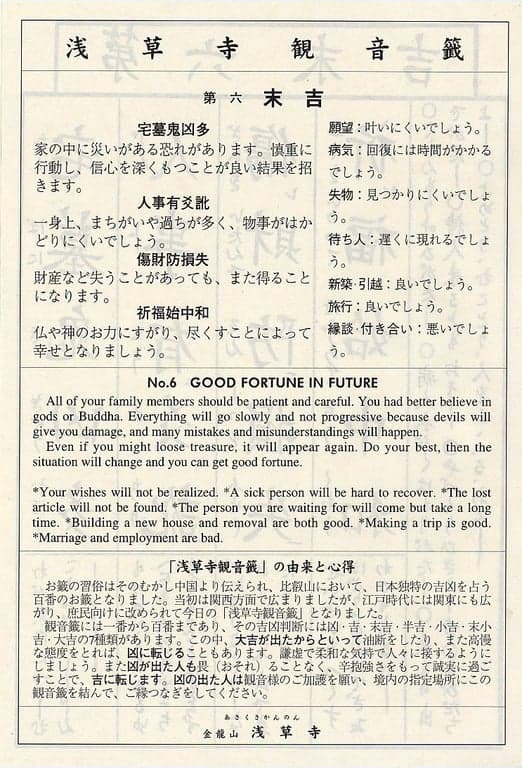 浅草寺観音籤
第六 末吉
宅墓鬼凶多
家の中に災いがある恐れがあります。慎重に
行動し、信心を深くもつことが良い結果を招
きます。
人事有爻訛
一身上、まちがいや過ちが多く、物事がはか
どりにくいでしょう。
傷財防損失
財産など失うことがあっても、また得ること
になります。
祈福始中和
仏や神のお力にすがり、尽くすことによって
幸せとなりましょう。
願望：叶いにくいでしょう。
病気：回復には時間がかかる
でしょう。
失物：見つかりにくいでしょ
う。
待ち人：遅くに現れるでしょ
う。
新築・引越：良いでしょう。
旅行：良いでしょう。
縁談・付き合い：悪いでしょ
う。
No.6 GOOD FORTUNE IN FUTURE
All of your family members should be patient and careful. You had better believe in
gods or Buddha. Everything will go slowly and not progressive because devils will
give you damage, and many mistakes and misunderstandings will happen.
Even if you might loose treasure, it will appear again. Do your best, then the
situation will change and you can get good fortune.
*Your wishes will not be realized. *A sick person will be hard to recover. *The lost
article will not be found. *The person you are waiting for will come but take a long
time. *Building a new house and removal are both good. *Making a trip is good.
*Marriage and employment are bad.
「浅草寺観音籤」の由来と心得
お籤の習俗はそのむかし中国より伝えられ、比叡山において、日本独特の吉凶を占う
百番のお籤となりました。当初は関西方面で広まりましたが、江戸時代には関東にも広
がり、庶民向けに改められて今日の「浅草寺観音籤」となりました。
観音籤には一番から百番まであり、その吉凶判断には凶・吉・末吉・半吉・小吉・末小
吉・大吉の7種類があります。この中、大吉が出たからといって油断をしたり、また高慢
な態度をとれば、凶に転じることもあります。謙虚で柔和な気持で人々に接するように
しましょう。また凶が出た人も畏（おそれ）ることなく、辛抱強さをもって誠実に過ご
すことで、吉に転じます。凶の出た人は観音様のご加護を願い、境内の指定場所にこの
観音籤を結んで、ご縁つなぎをしてください。
あさくさかんのん
金龍山 浅草寺